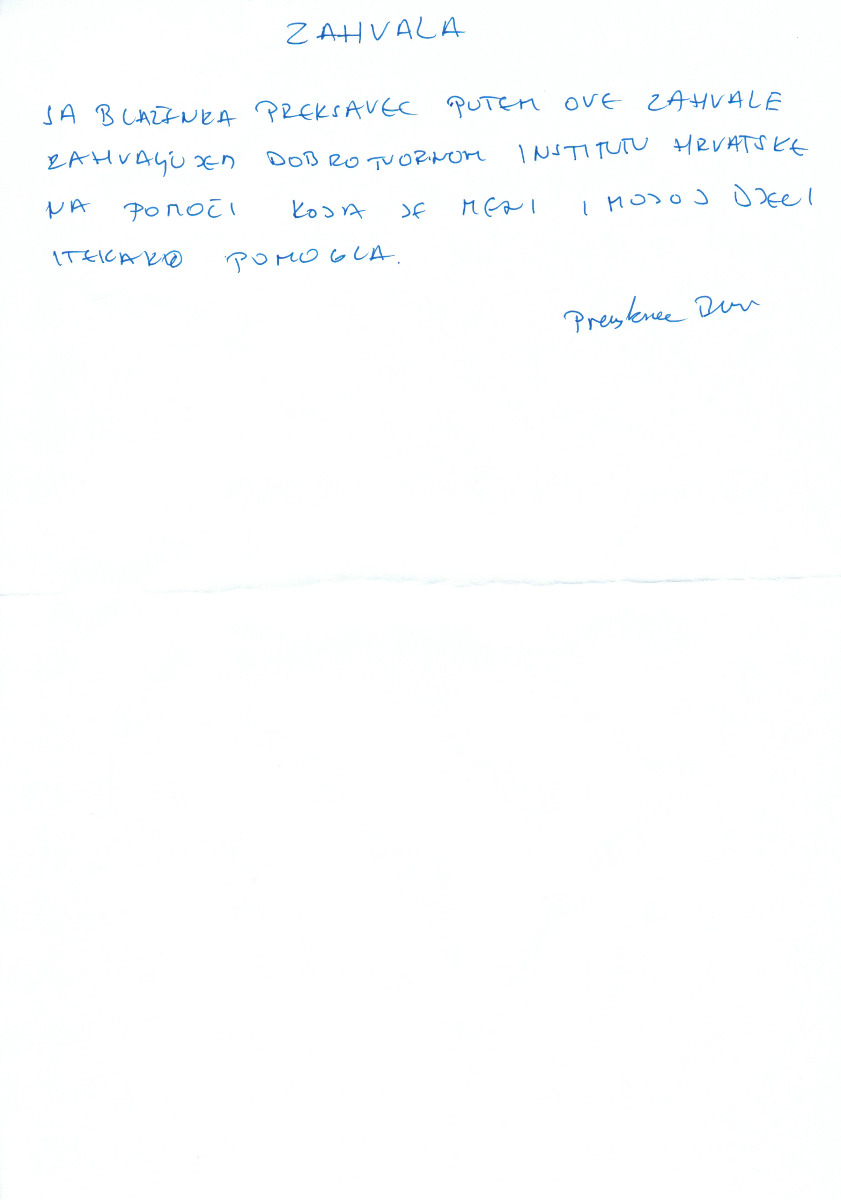 ZAHVALA
JA BLAŽENKA PREKSAVEC PUTEM OVE ZAHVALE
ZAHVALJUJEM DOBROTVORNOM INSTITUTU HRVATSKE
NA POMOĆI KOJA JE MENI I MOJOJ DJECI
ITEKAKO POMOGLA.